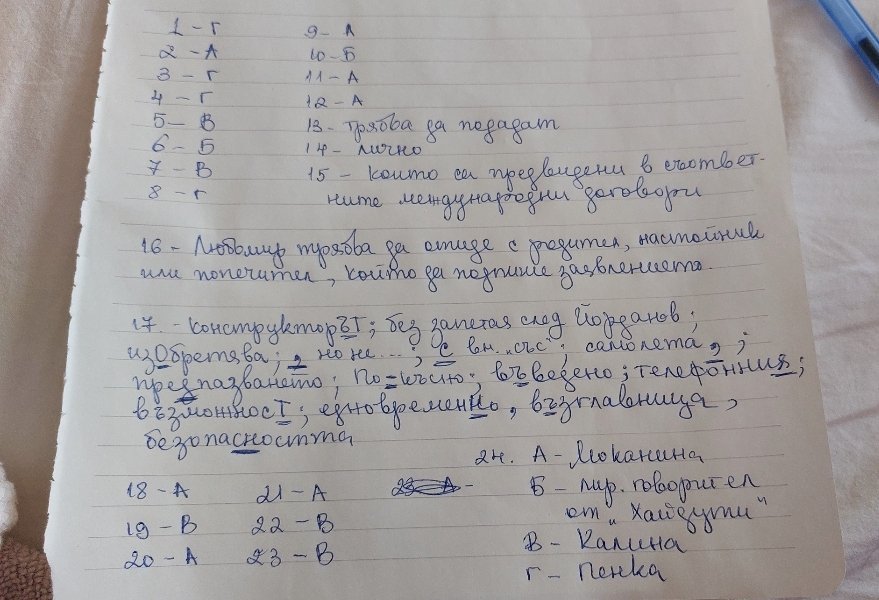 1 - Г
2 - А
3 - Г
4 - Г
5 - В
6 - Б
7 - В
8 - Г
9 - А
10 - Б
11 - А
12 - А
13 - трябва да подадат
14 - лично
15 - които са предвидени в съответ-
ните международни договори
16 - Любомир трябва да отиде с родител, настойник
или попечител, който да подпише заявлението.
17. - конструкторЪТ; без запетая след Йорданов;
изОбретява; , но не...; С вм. "със"; самолета, ;
предпазването; По-късно; въведено; телефонния;
възможносТ; едновременно, възглавница,
безопасността
18 - А
19 - В
20 - А
21 - А
22 - В
23 - В
24. А - Моканина
Б - лир. говорител
от "Хайдути"
В - Калина
Г - Пенка